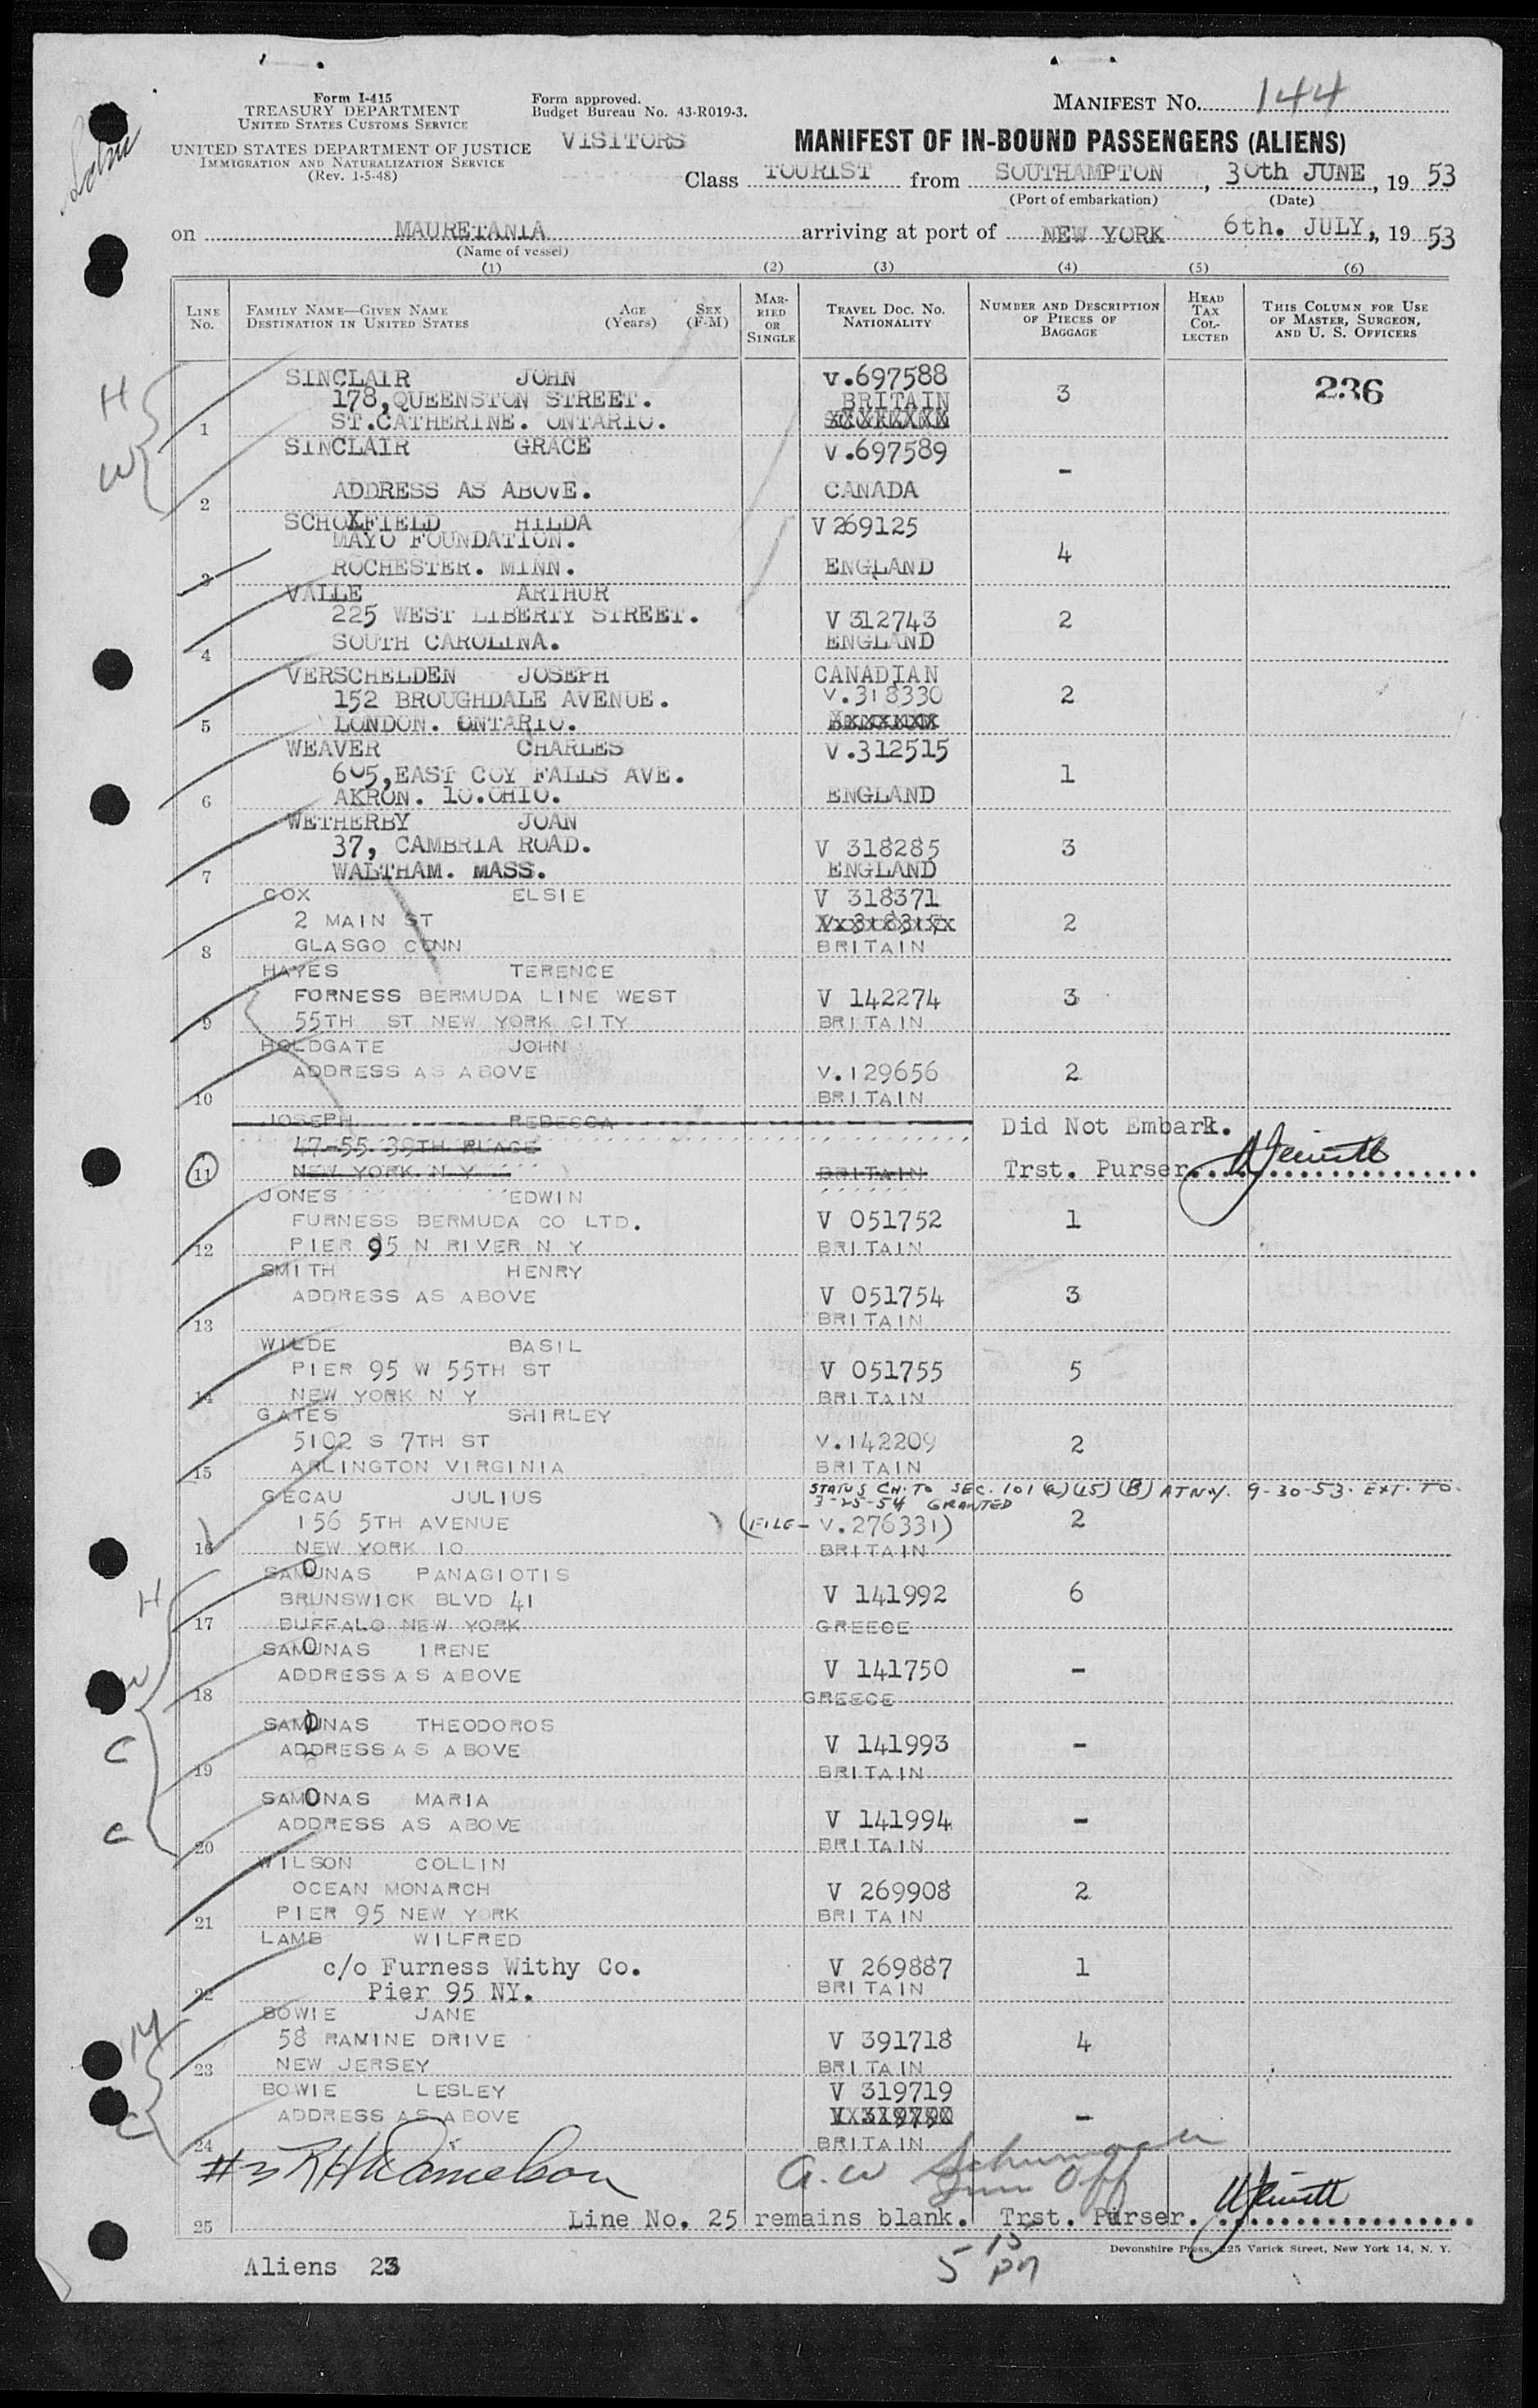 Form I-415
TREASURY DEPARTMENT
UNITED STATES CUSTOMS SERVICE
UNITED STATES DEPARTMENT OF JUSTICE
IMMIGRATION AND NATURALIZATION SERVICE
(Rev. 1-5-48)
Form approved.
Budget Bureau No. 43-R019-3.
VISITORS
MANIFEST NO. 144
MANIFEST OF IN-BOUND PASSENGERS (ALIENS)
Class TOURIST from SOUTHAMPTON, 30th JUNE, 19 53
(Port of embarkation) (Date)
on MAURETANIA arriving at port of NEW YORK 6th. JULY,, 19 53
(Name of vessel)
(1) (2) (3) (4) (5) (6)
LINE NO. FAMILY NAME—GIVEN NAME DESTINATION IN UNITED STATES AGE (Years) SEX (F-M) MARRIED OR SINGLE TRAVEL DOC. NO. NATIONALITY NUMBER AND DESCRIPTION OF PIECES OF BAGGAGE HEAD TAX COLLECTED THIS COLUMN FOR USE OF MASTER, SURGEON, AND U. S. OFFICERS
H SINCLAIR JOHN V.697588 3 236
178,QUEENSTON STREET. BRITAIN
1 ST.CATHERINE. ONTARIO.
W SINCLAIR GRACE V.697589 -
2 ADDRESS AS ABOVE. CANADA
SCHOXFIELD HILDA V 269125
MAYO FOUNDATION. 4
3 ROCHESTER. MINN. ENGLAND
VALLE ARTHUR
225 WEST LIBERTY STREET. V 312743 2
4 SOUTH CAROLINA. ENGLAND
VERSCHELDEN JOSEPH CANADIAN
152 BROUGHDALE AVENUE. V.318330 2
5 LONDON. ONTARIO.
WEAVER CHARLES V.312515
605,EAST COY FALLS AVE. 1
6 AKRON. 10.OHIO. ENGLAND
WETHERBY JOAN
37, CAMBRIA ROAD. V 318285 3
7 WALTHAM. MASS. ENGLAND
COX ELSIE V 318371
2 MAIN ST 2
8 GLASGO CONN BRITAIN
HAYES TERENCE
FURNESS BERMUDA LINE WEST V 142274 3
9 55TH ST NEW YORK CITY BRITAIN
HOLDGATE JOHN
ADDRESS AS ABOVE V.129656 2
10 BRITAIN
JOSEPH REBECCA Did Not Embark.
47-55 39TH PLACE
11 NEW YORK N Y BRITAIN Trst. Purser.
JONES EDWIN
FURNESS BERMUDA CO LTD. V 051752 1
12 PIER 95 N RIVER N Y BRITAIN
SMITH HENRY
ADDRESS AS ABOVE V 051754 3
13 BRITAIN
WILDE BASIL
PIER 95 W 55TH ST V 051755 5
14 NEW YORK N Y BRITAIN
GATES SHIRLEY
5102 S 7TH ST V.142209 2
15 ARLINGTON VIRGINIA BRITAIN
STATUS CH. TO SEC. 101 (a)(15)(B) ATNY. 9-30-53. EXT. TO.
GECAU JULIUS 3-25-54 GRANTED
156 5TH AVENUE (FILE- V.276331) 2
16 NEW YORK 10 BRITAIN
H SAMONAS PANAGIOTIS
BRUNSWICK BLVD 41 V 141992 6
17 BUFFALO NEW YORK GREECE
W SAMONAS IRENE
ADDRESS AS ABOVE V 141750 -
18 GREECE
C SAMONAS THEODOROS
ADDRESS AS ABOVE V 141993 -
19 BRITAIN
C SAMONAS MARIA
ADDRESS AS ABOVE V 141994 -
20 BRITAIN
WILSON COLLIN
OCEAN MONARCH V 269908 2
21 PIER 95 NEW YORK BRITAIN
LAMB WILFRED
c/o Furness Withy Co. V 269887 1
22 Pier 95 NY. BRITAIN
M BOWIE JANE
58 RAMINE DRIVE V 391718 4
23 NEW JERSEY BRITAIN
C BOWIE LESLEY V 319719
ADDRESS AS ABOVE -
24 BRITAIN
Imm Off
25 Line No. 25 remains blank. Trst. Purser.
Devonshire Press, 225 Varick Street, New York 14, N. Y.
Aliens 23
5 15 pm